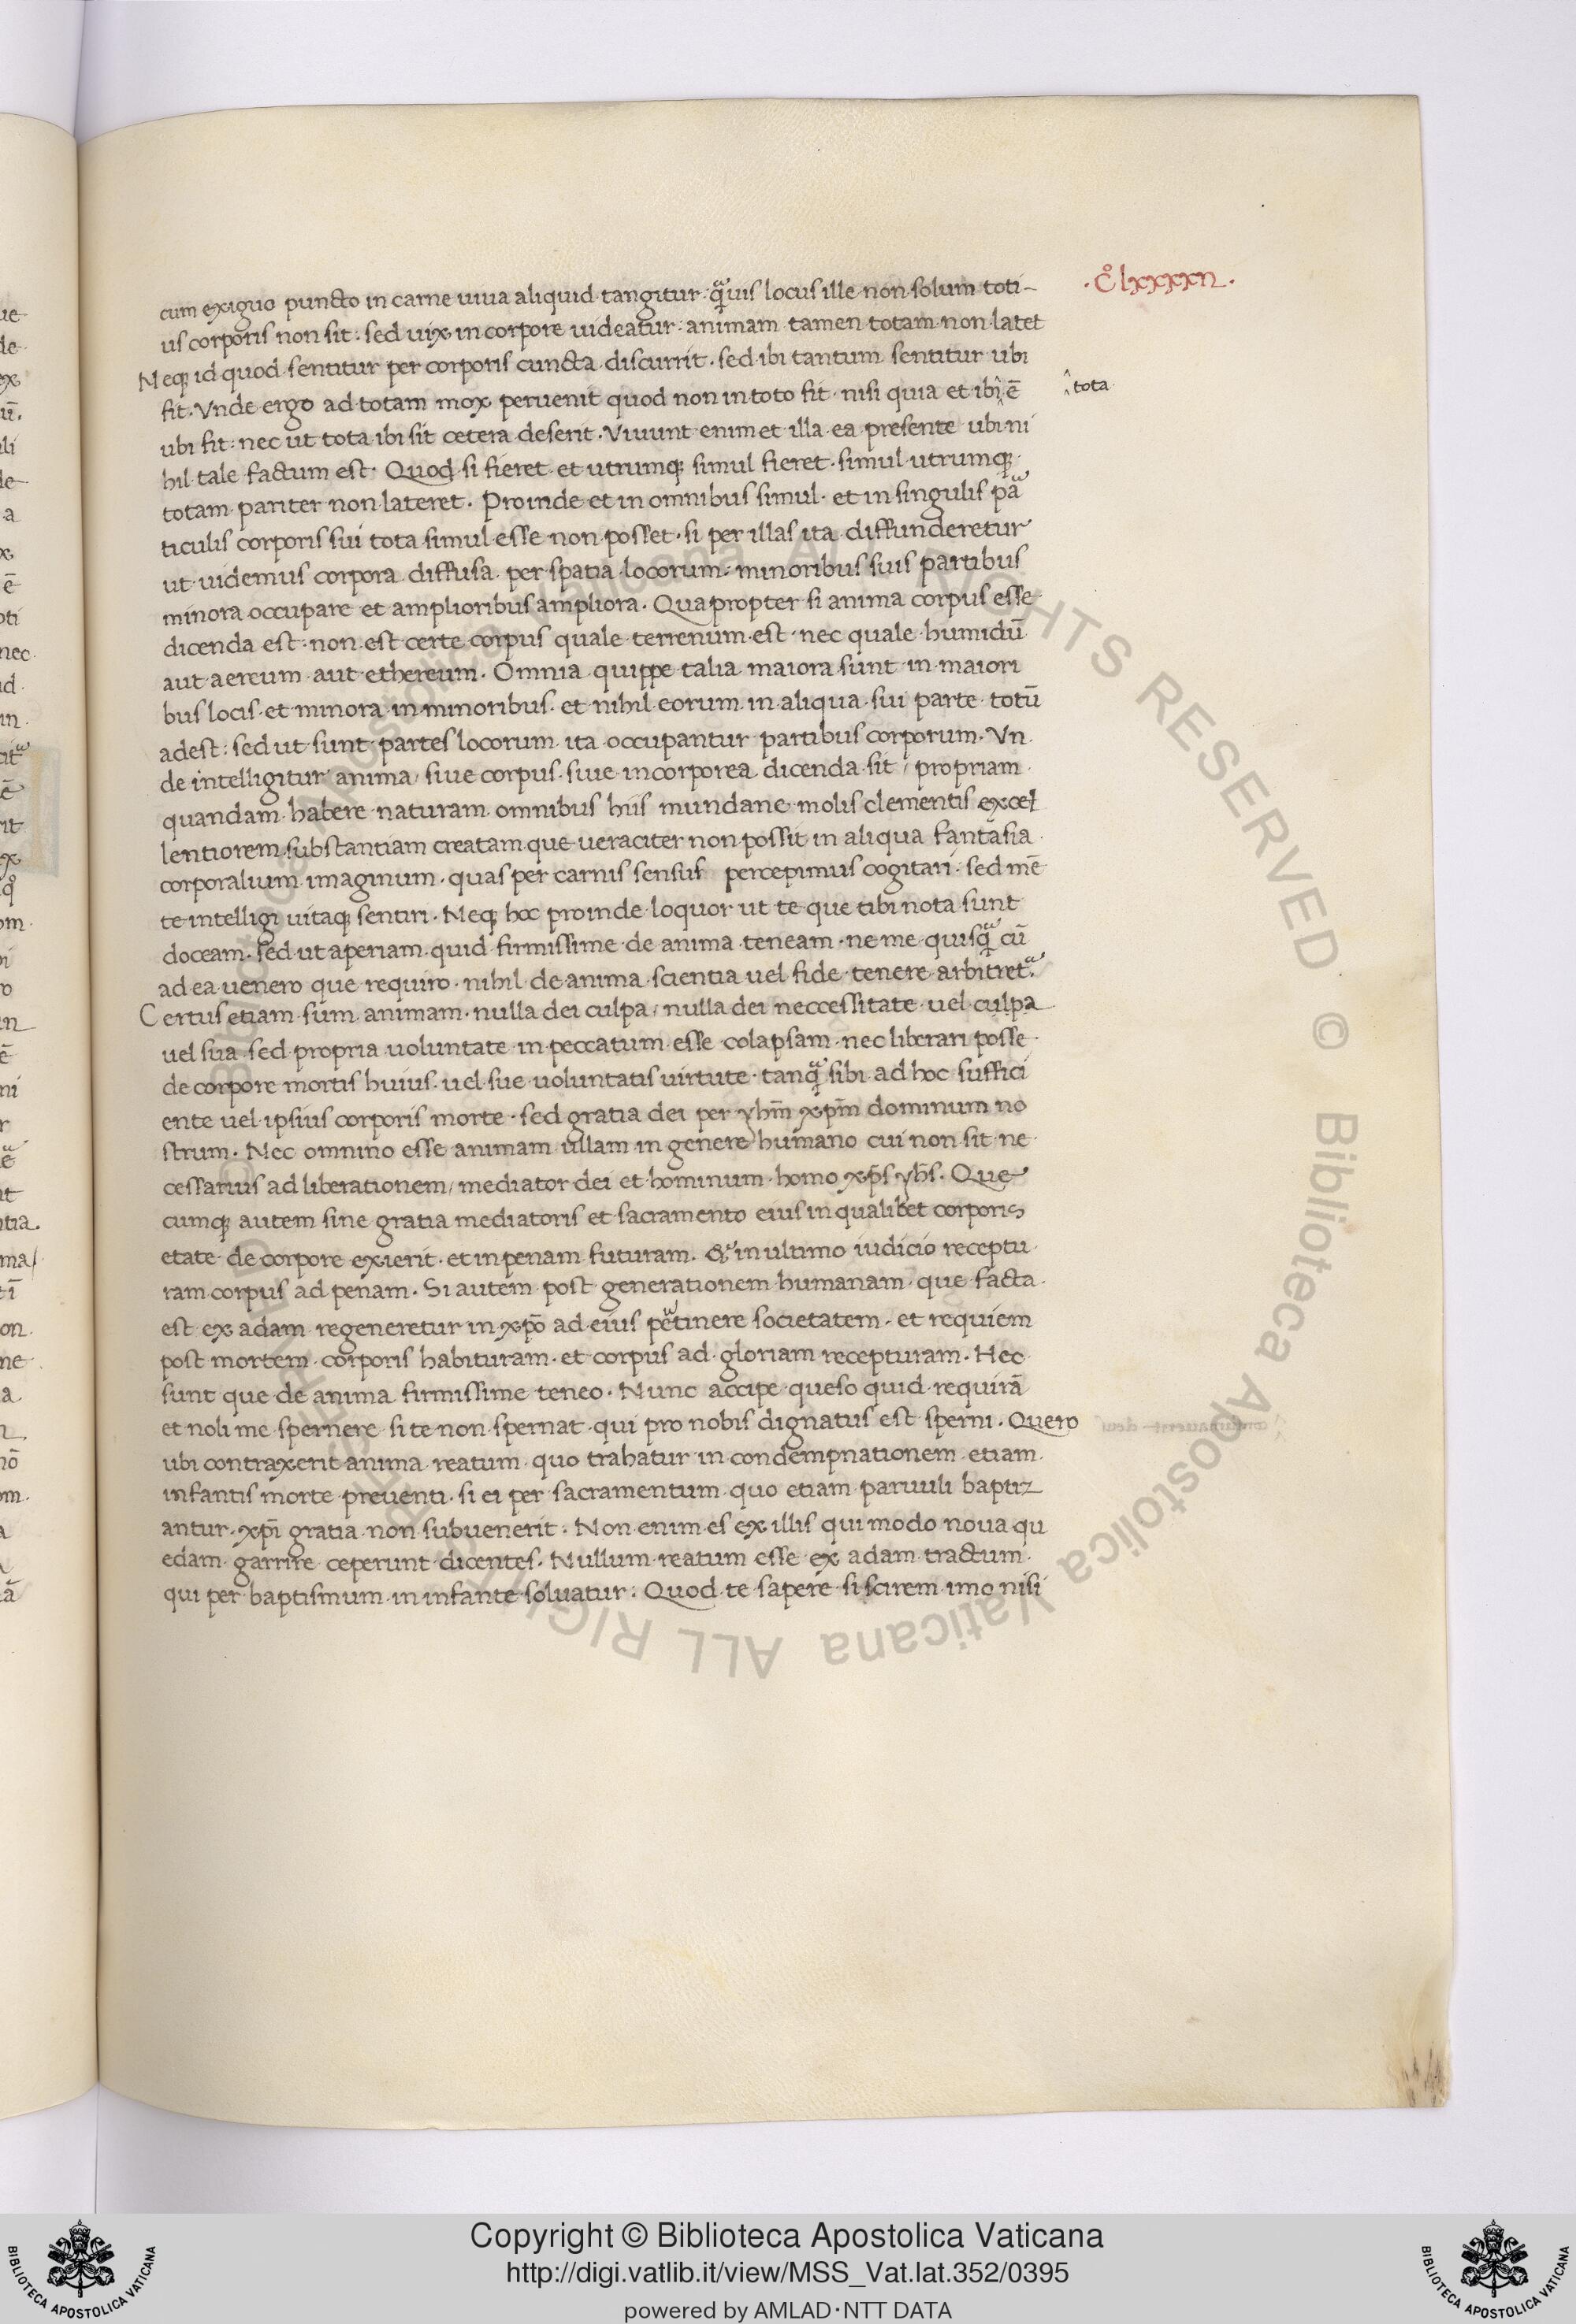 cum exiguo puncto in carne uiua aliquid tangitur· qͣuis locus ille non solum toti-
·Cͦ lxxxxii·
us corporis non sit· sed uix in corpore uideatur: animam tamen totam non latet
Neq; id quod sentitur per corporis cuncta discurrit· sed ibi tantum sentitur ubi
fit. Vnde ergo ad totam mox peruenit quod non in toto fit· nisi quia et ibi^ ē
^ tota
ubi fit: nec ut tota ibi sit cetera deserit. Viuunt enim et illa ea presente ubi ni
hil tale factum est. Quod si fieret et utrumq; simul fieret· simul utrumq;
totam pariter non lateret. Proinde et in omnibus simul· et in singulis pᷓa
ticulis corporis sui tota simul esse non posset· si per illas ita diffunderetur
ut uidemus corpora diffusa per spatia locorum· minoribus suis partibus
minora occupare et amplioribus ampliora. Quapropter si anima corpus esse
dicenda est· non est certe corpus quale terrenum est· nec quale humidū
aut aereum aut ethereum. Omnia quippe talia maiora sunt in maiori
bus locis et minora in minoribus· et nihil eorum in aliqua sui parte totū
adest: sed ut sunt partes locorum ita occupantur partibus corporum. Vn
de intelligitur anima/ siue corpus· siue incorporea dicenda sit/ propriam
quandam habere naturam omnibus hiis mundane molis elementis excel
lentiorem substantiam creatam que ueraciter non possit in aliqua fantasia
corporalium imaginum· quas per carnis sensus percepimus cogitari· sed mē
te intelligi uitaq; sentiri. Neq; hoc proinde loquor ut te que tibi nota sunt
doceam· sed ut aperiam quid firmissime de anima teneam· ne me quisqͣ cū
ad ea uenero que requiro· nihil de anima scientia uel fide tenere arbitret᷑.
Certus etiam sum animam· nulla dei culpa/ nulla dei neccessitate uel culpa
uel sua sed propria uoluntate in peccatum esse colapsam· nec liberari posse
de corpore mortis huius· uel sue uoluntatis uirtute· tanqͣ sibi ad hoc suffici
ente uel ipsius corporis morte· sed gratia dei per yhm̄ xpm̄ dominum no
strum. Nec omnino esse animam ullam in genere humano cui non sit ne
cessarius ad liberationem/ mediator dei et hominum homo xps̄ yhs̄. Que
cumq; autem sine gratia mediatoris et sacramento eius in qualibet corporis
etate de corpore exierit· et in penam futuram. & in ultimo iudicio receptu
ram corpus ad penam. Si autem post generationem humanam que facta
est ex adam regeneretur in xpō ad eius pe᷑tinere societatem· et requiem
post mortem corporis habituram· et corpus ad gloriam recepturam. Hec
sunt que de anima firmissime teneo. Nunc accipe queso quid requirā
et noli me spernere si te non spernat qui pro nobis dignatus est sperni. Quero
ubi contraxerit anima reatum quo trahatur in condempnationem etiam
infantis morte preuenti· si ei per sacramentum quo etiam paruuli baptiz
antur· xpi̅ gratia non subuenerit. Non enim es ex illis qui modo noua qu
edam garrire ceperunt dicentes. Nullum reatum esse ex adam tractum
qui per baptismum in infante soluatur. Quod te sapere si scirem imo nisi
© Biblioteca Apostolica Vaticana ALL RIGHTS RESERVED
Copyright © Biblioteca Apostolica Vaticana
http://digi.vatlib.it/view/MSS_Vat.lat.352/0395
powered by AMLAD·NTT DATA
BIBLIOTECA APOSTOLICA VATICANA
BIBLIOTECA APOSTOLICA VATICANA